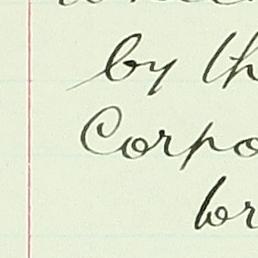 by th
Corpo
br